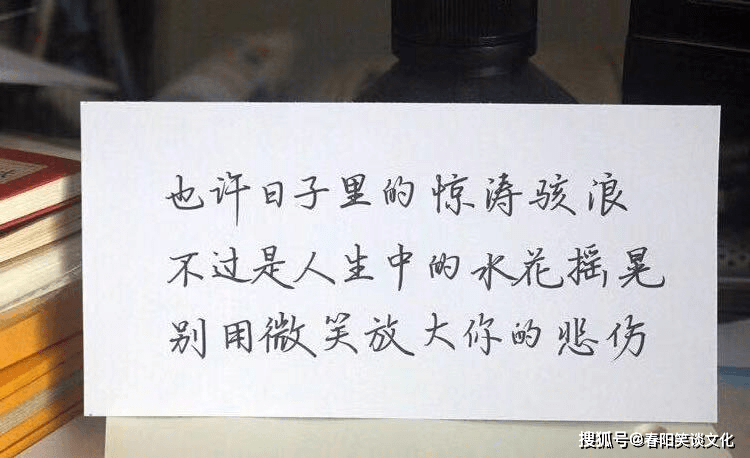 也许日子里的惊涛骇浪
不过是人生中的水花摇晃
别用微笑放大你的悲伤
搜狐号@春阳笑谈文化